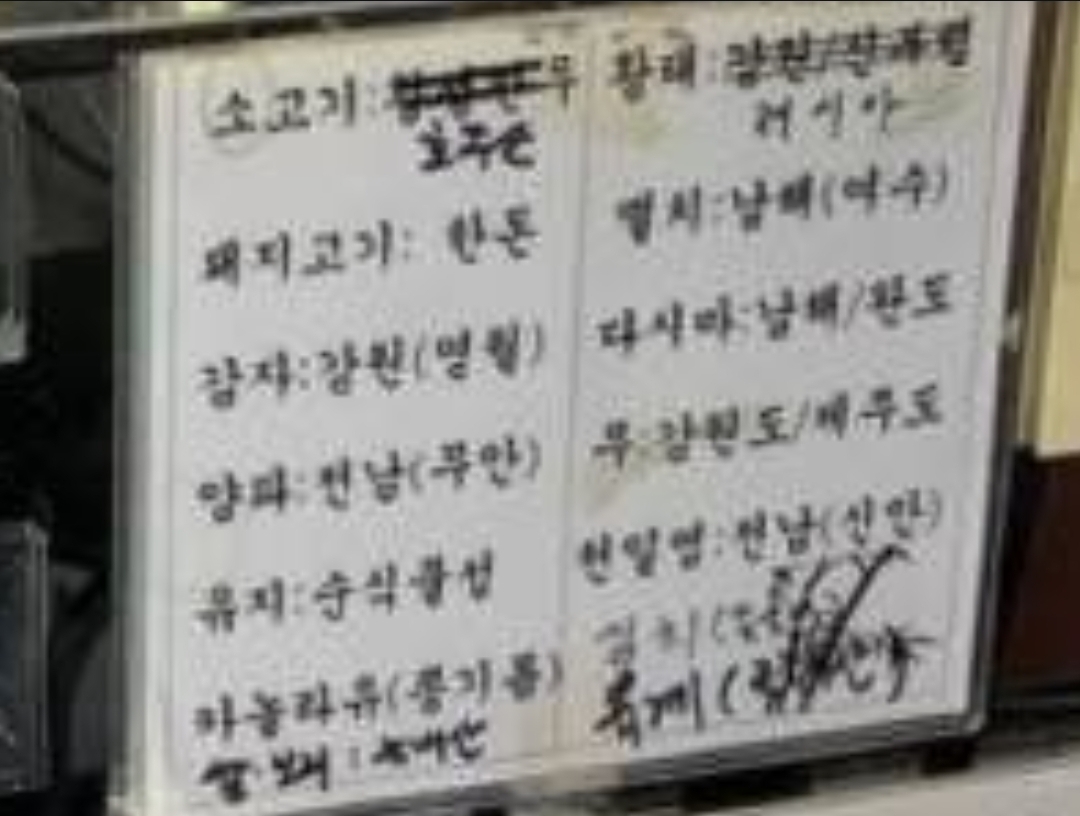 소고기: 우
호주산
돼지고기: 한돈
감자:강원(영월)
양파:전남(무안)
유지:순식물성
카놀라유(콩기름)
쌀·보리:국내산
황태:
러시아
멸치:남해(여수)
다시마:남해/완도
무:강원도/제주도
천일염:전남(신안)
김치